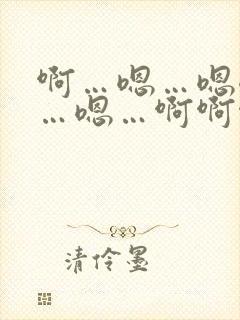 啊…嗯…嗯
…嗯…啊啊
清伶墨